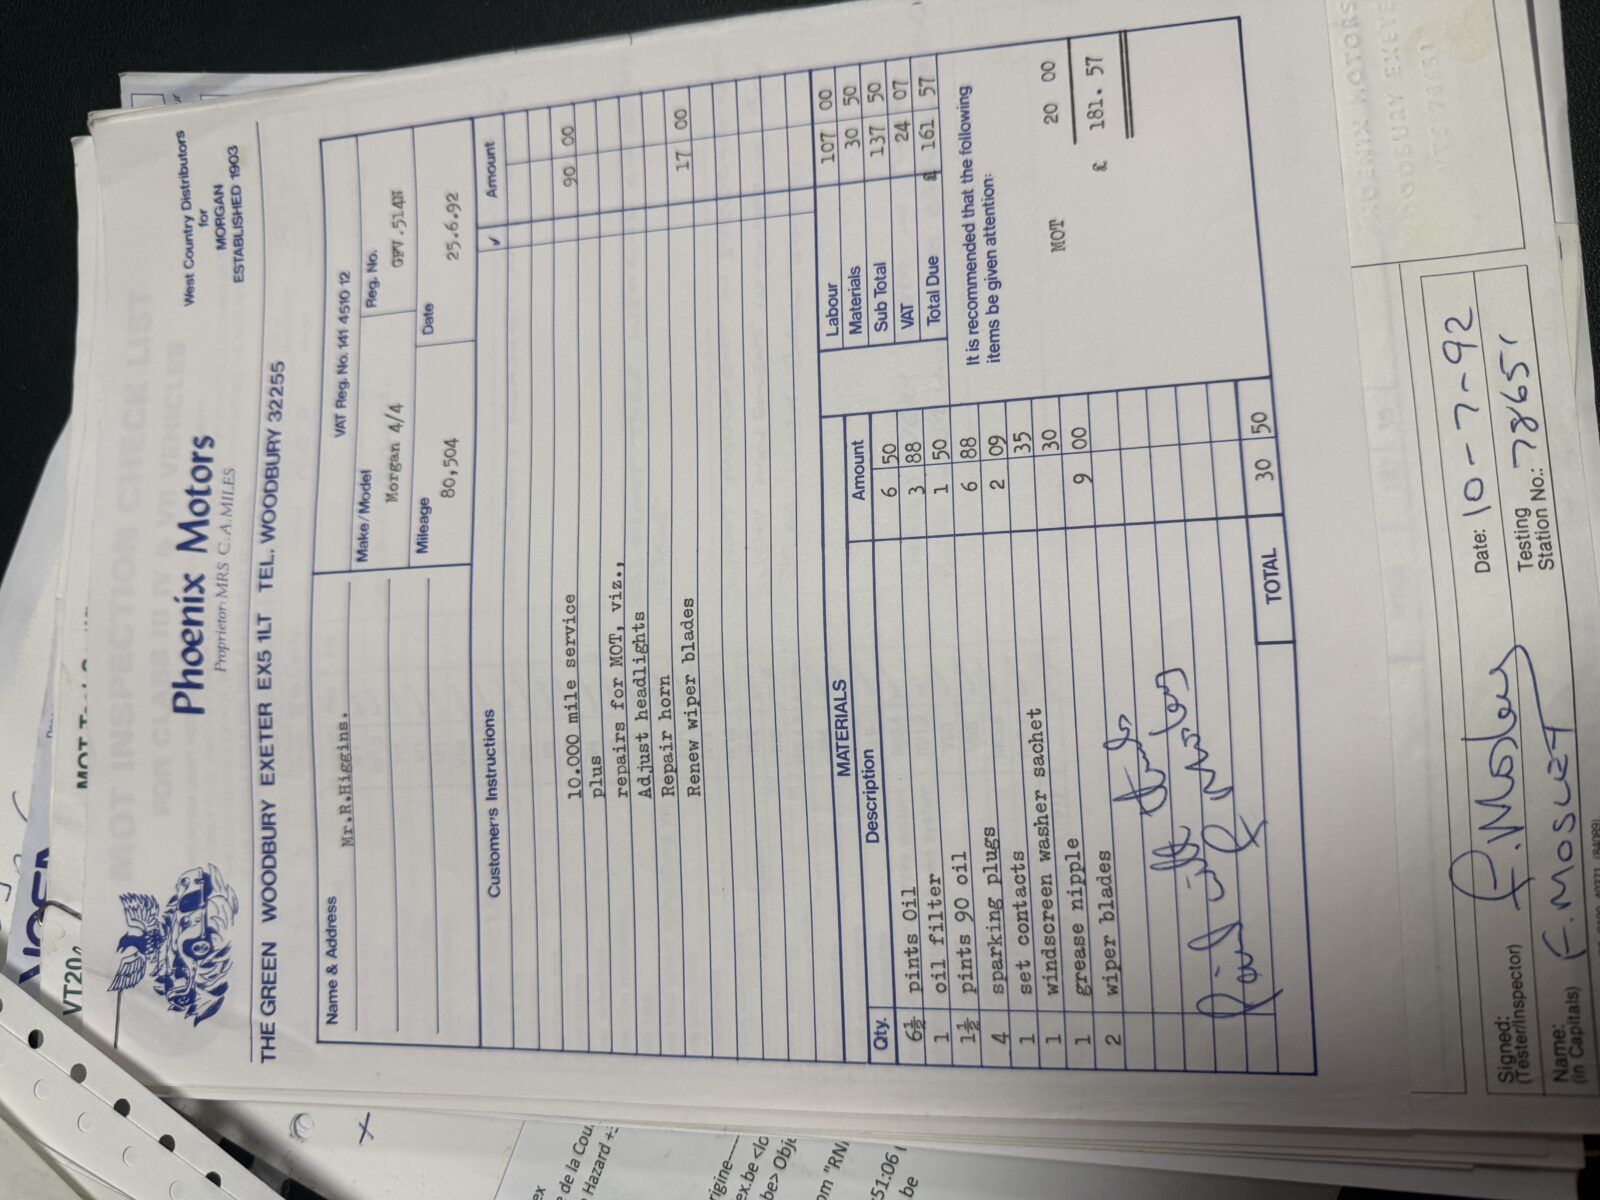 West Country Distributors
for
MORGAN
ESTABLISHED 1903
Phoenix Motors
Proprietor: MRS C.A.MILES
THE GREEN WOODBURY EXETER EX5 1LT TEL. WOODBURY 32255
VAT Reg. No. 141 4510 12
Name & Address
Mr.R.Higgins.
Make/Model
Morgan 4/4
Reg. No.
514N
Mileage
80,504
Date
25.6.92
Customer's Instructions ✓ Amount
10.000 mile service 90 00
plus
repairs for MOT, viz.,
Adjust headlights
Repair horn
Renew wiper blades 17 00
MATERIALS
Qty. Description Amount
6½ pints Oil 6 50
1 oil filter 3 88
1½ pints 90 oil 1 50
4 sparking plugs 6 88
1 set contacts 2 09
1 windscreen washer sachet 35
1 grease nipple 30
2 wiper blades 9 00
TOTAL 30 50
Labour 107 00
Materials 30 50
Sub Total 137 50
VAT 24 07
Total Due £ 161 57
It is recommended that the following
items be given attention:
MOT 20 00
£ 181. 57
Paid with thanks
F Mosley
Signed:
(Tester/Inspector)
F. Mosley
Date: 10-7-92
Name:
(in Capitals)
F. MOSLEY
Testing
Station No.: 78651
MOT INSPECTION CHECK LIST
VT20
de la Cou
Hazard
rigine
ex.be
be> Obje
om "RN
:51:06
be